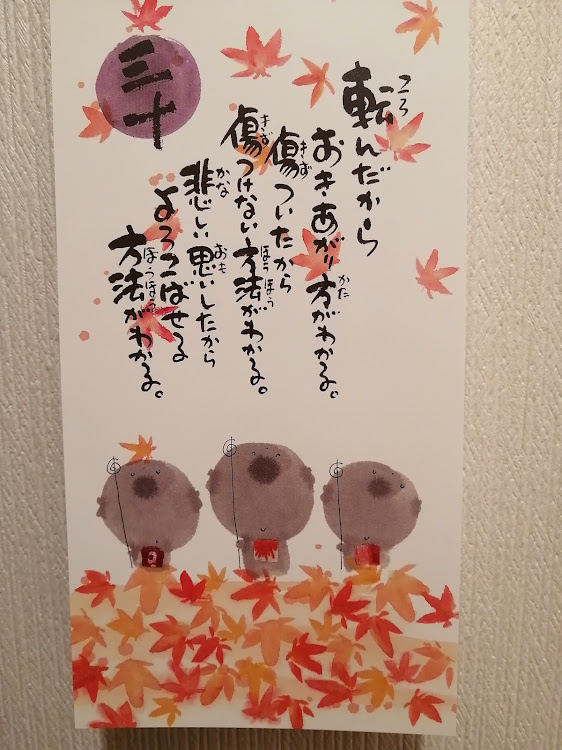 転んだから
おきあがり方がわかる。
傷ついたから
傷つけない方法がわかる。
悲しい思いしたから
よろこばせる
方法がわかる。
三十